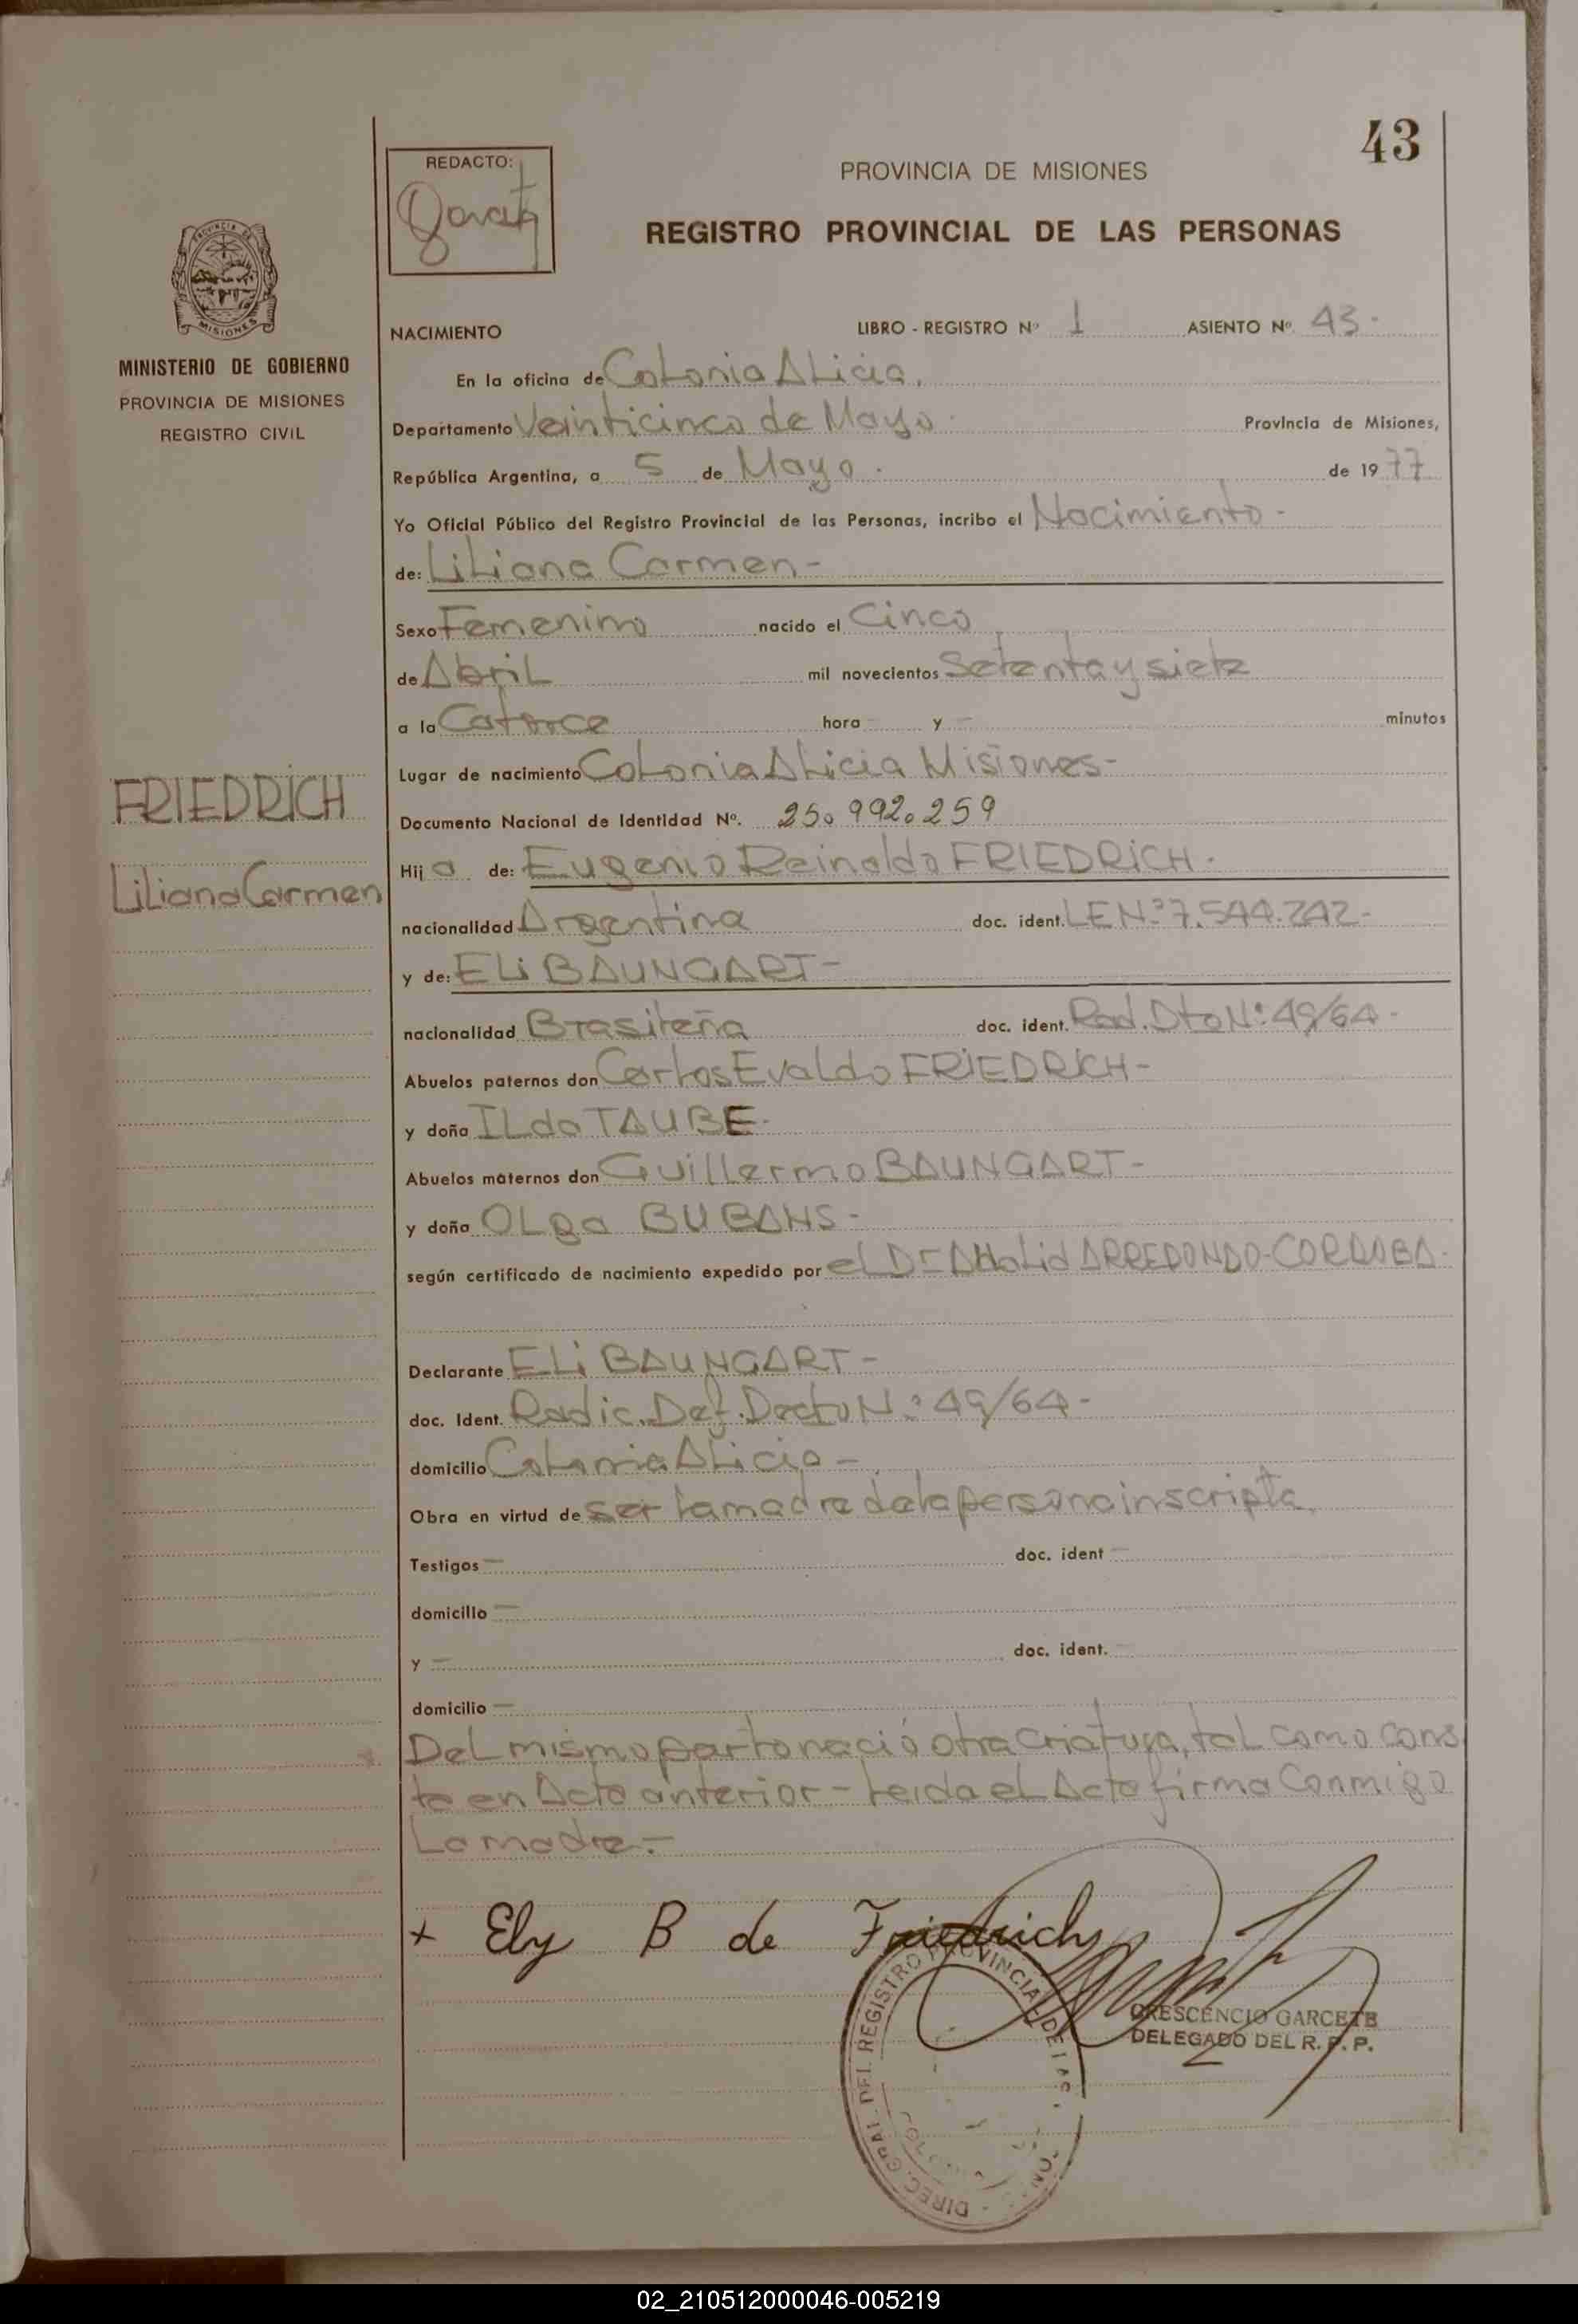 43
REDACTO:
PROVINCIA DE MISIONES
REGISTRO PROVINCIAL DE LAS PERSONAS
MISIONES
MINISTERIO DE GOBIERNO
PROVINCIA DE MISIONES
REGISTRO CIVIL
NACIMIENTO LIBRO - REGISTRO Nº 1 ASIENTO Nº 43-
En la oficina de Colonia Alicia.
Departamento Veinticinco de Mayo. Provincia de Misiones,
República Argentina, a 5 de Mayo. de 1977
Yo Oficial Público del Registro Provincial de las Personas, incribo el Nacimiento-
de: Liliana Carmen-
Sexo Femenino nacido el Cinco
de Abril mil novecientos Setenta y siete
a la Catorce hora - y - minutos
Lugar de nacimiento Colonia Alicia Misiones-
FRIEDRICH
Documento Nacional de Identidad Nº. 25.992.259
Hij a de: Eugenio Reinaldo FRIEDRICH.
Liliana Carmen
nacionalidad Argentina doc. ident. LE Nº 7.544.242-
y de: ELi BAUNGART-
nacionalidad Brasileña doc. ident. Rad. Dto Nº: 49/64-
Abuelos paternos don Carlos Evaldo FRIEDRICH-
y doña ILda TAUBE-
Abuelos maternos don Guillermo BAUNGART-
y doña OLga BUBANS-
según certificado de nacimiento expedido por el Dr ARREDONDO-CORDOBA-
Declarante ELi BAUNGART-
doc. Ident. Radic. Def. Decto Nº: 49/64-
domicilio Colonia Alicia-
Obra en virtud de ser la madre de la persona inscripta.
Testigos - doc. ident -
domicilio -
y - doc. ident. -
domicilio -
Del mismo parto nació otra criatura, tal como cons
ta en Acta anterior- leida el Acta firma conmigo
La madre.-
+ Ely B de Friedrich
CRESCENCIO GARCETE
DELEGADO DEL R. P. P.
DIREC. GRAL. DEL REGISTRO PROVINCIAL DE LAS
02_210512000046-005219